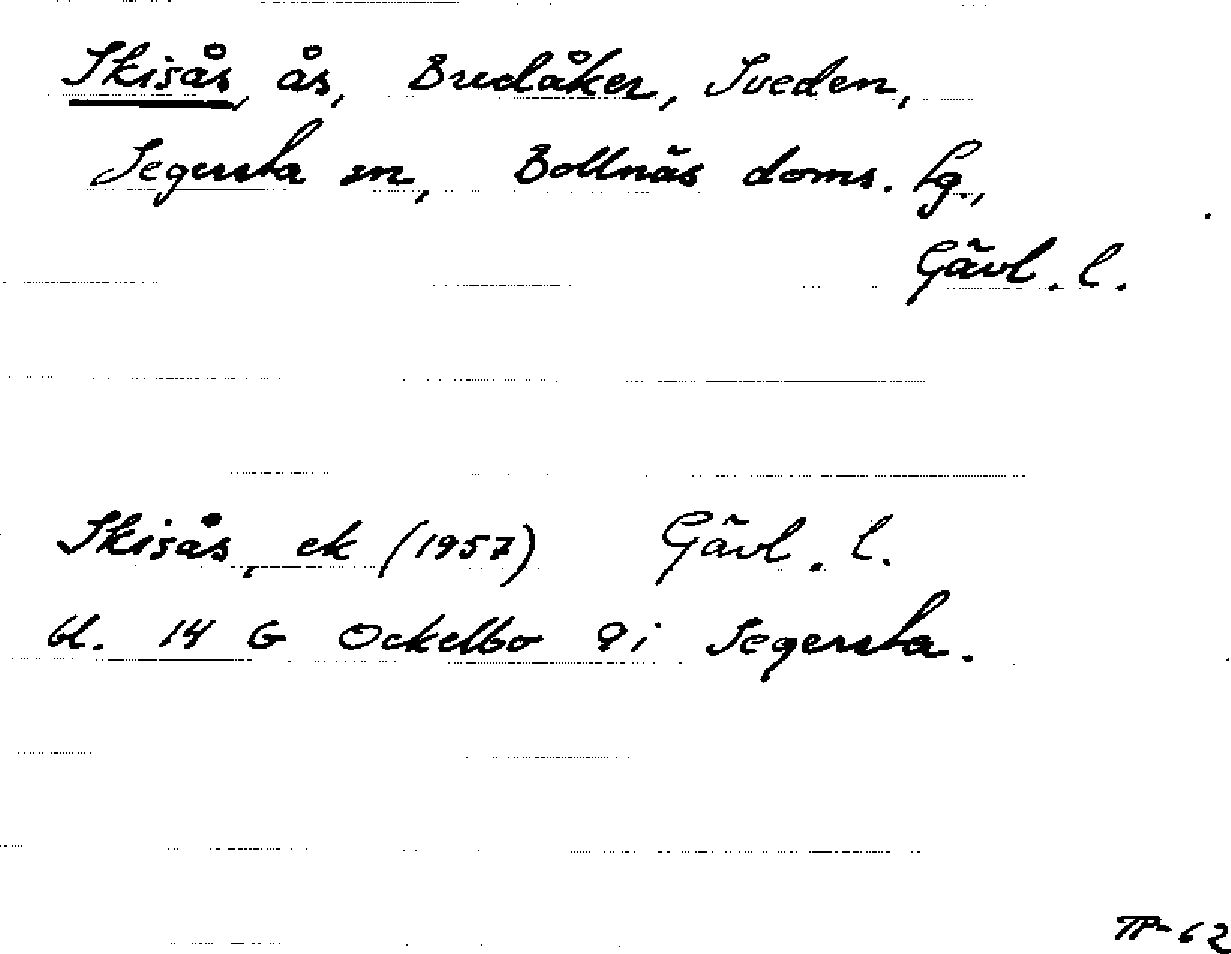 Skisås, ås, Bredåker, Sveden,
Segersta sn, Bollnäs doms. lg.,
Gävl. l.
Skisås, ek (1957) Gävl. l.
bl. 14 G Ockelbo 9 i Segersta.
TP-62